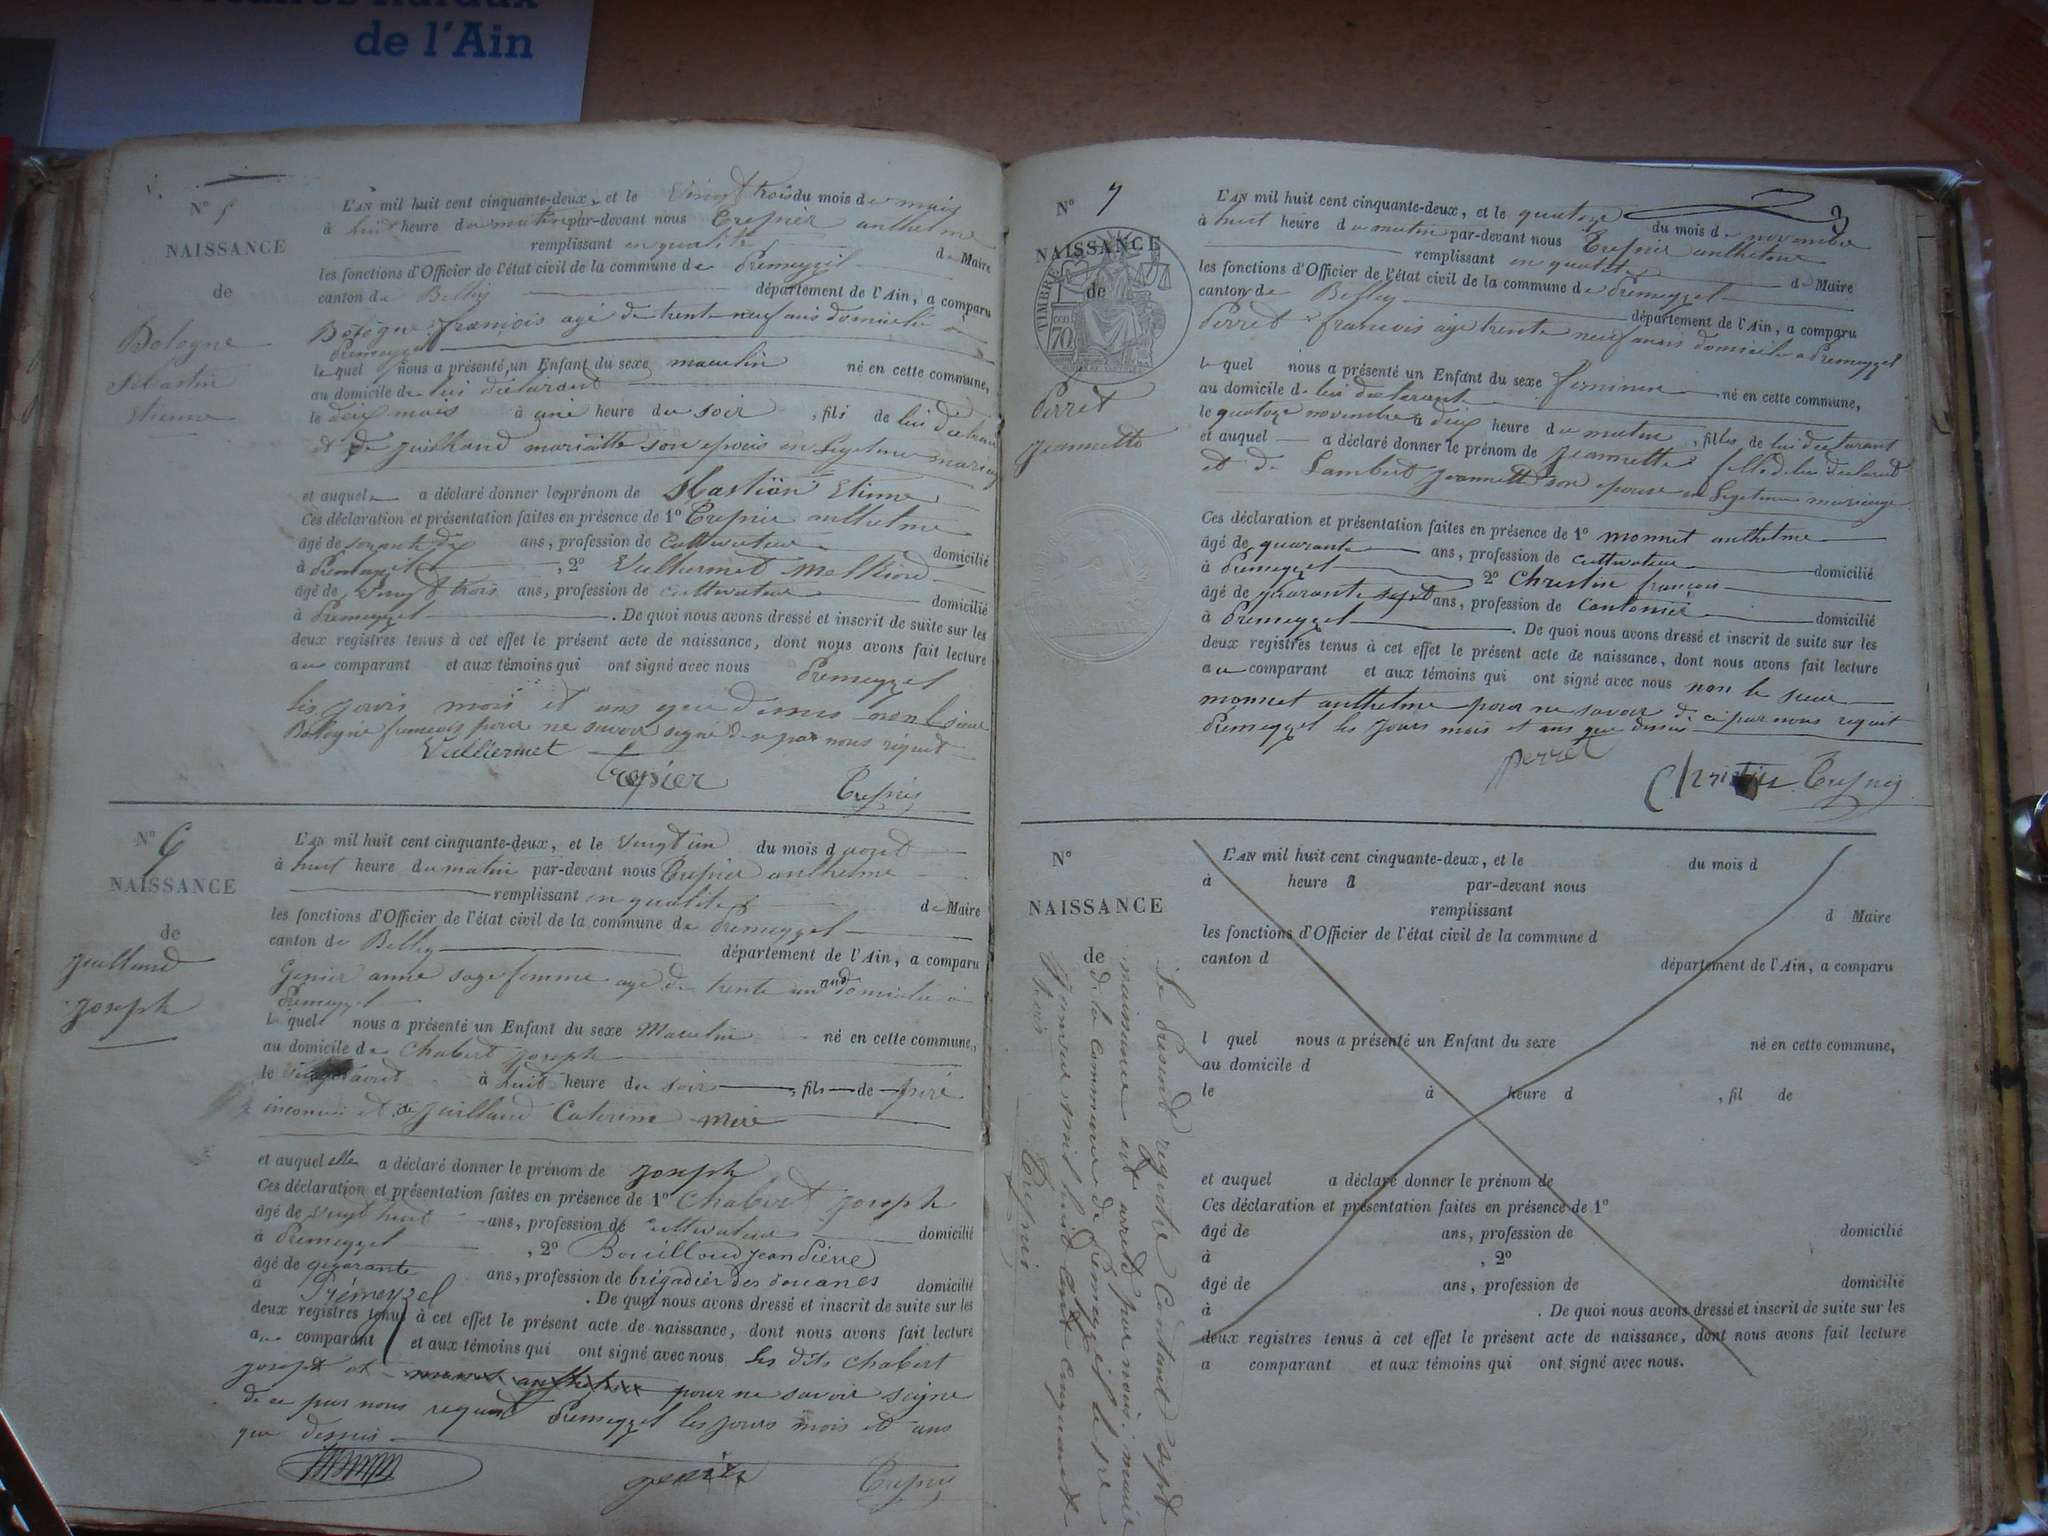 de l'Ain
N° 5
NAISSANCE
de
Bologne
Sebastien
Etienne
L'AN mil huit cent cinquante-deux, et le vingt trois du mois de mais
à huit heure du matin par-devant nous Trepier anthelme
remplissant en qualité de Maire
les fonctions d'Officier de l'état civil de la commune de Premeyzel
canton de Belley département de l'Ain, a comparu
Bologne françois agé de trente neuf ans domicilié à
Premeyzel
lequel nous a présenté un Enfant du sexe masculin né en cette commune,
au domicile de lui déclarant
le mais à une heure du soir, fils de lui
et de juilland son en
et auquel a déclaré donner les prénom de Etienne
Ces déclaration et présentation faites en présence de 1° Trepier anthelme
âgé de ans, profession de cultivateur domicilié
à Premeyzel, 2° Vulliermet
âgé de vingt trois ans, profession de cultivateur domicilié
à Premeyzel. De quoi nous avons dressé et inscrit de suite sur les
deux registres tenus à cet effet le présent acte de naissance, dont nous avons fait lecture
au comparant et aux témoins qui ont signé avec nous Premeyzel
les jours mois et ans que dessus non le sieur
Bologne francois pour ne savoir signé de ce par nous réquit
Vulliermet Trepier Trepier
N° 6
NAISSANCE
de
juilland
joseph
L'AN mil huit cent cinquante-deux, et le vingt un du mois d aout
à huit heure du matin par-devant nous Trepier anthelme
remplissant en qualité de Maire
les fonctions d'Officier de l'état civil de la commune de Premeyzel
canton de Belley département de l'Ain, a comparu
Genier anne sage femme agé de trente un ans domicilié à
Premeyzel
lequel nous a présenté un Enfant du sexe Masculin né en cette commune,
au domicile de Chabert joseph
le vingt aout à huit heure du soir, fils de père
inconnu et de juilland Caterine mère
et auquel elle a déclaré donner le prénom de joseph
Ces déclaration et présentation faites en présence de 1° Chabert joseph
âgé de vingt huit ans, profession de cultivateur domicilié
à Premeyzel, 2° Bouilloud jean Pierre
âgé de quarante ans, profession de brigadier des douanes domicilié
à Prémeyzel. De quoi nous avons dressé et inscrit de suite sur les
deux registres tenus à cet effet le présent acte de naissance, dont nous avons fait lecture
au comparant et aux témoins qui ont signé avec nous les dits chabert
joseph et pour ne savoir signe
de ce par nous requit Premeyzel les jours mois et ans
que dessus
genier Trepier
N° 7
NAISSANCE
de
TIMBRE
70
Perret
jeannette
L'AN mil huit cent cinquante-deux, et le quatoze du mois de novembre
à huit heure du matin par-devant nous Trepier anthelme
remplissant en qualité de Maire
les fonctions d'Officier de l'état civil de la commune de Premeyzel
canton de Belley département de l'Ain, a comparu
Perret francois âge trente neuf anns domicile a Premeyzel
lequel nous a présenté un Enfant du sexe feminin né en cette commune,
au domicile de lui declarant
le quatoze novembre à dix heure du matin, filles de lui declarant
et auquel a déclaré donner le prénom de jeannette fille de lui declarant
et de Lambert jeannette son epouse en
Ces déclaration et présentation faites en présence de 1° monnet anthelme
âgé de quarante ans, profession de cultivateur domicilié
à Premeyzel 2° Christin francois
âgé de quarante sept ans, profession de Cantonier domicilié
à Premeyzel. De quoi nous avons dressé et inscrit de suite sur les
deux registres tenus à cet effet le présent acte de naissance, dont nous avons fait lecture
au comparant et aux témoins qui ont signé avec nous non le sieur
monnet anthelme pour ne savoir de ce par nous requit
Premeyzel les jours mois et ans que dessus
perret Christin Trepier
N°
NAISSANCE
de
L'AN mil huit cent cinquante-deux, et le du mois d
à heure d par-devant nous
remplissant d Maire
les fonctions d'Officier de l'état civil de la commune d
canton d département de l'Ain, a comparu
l quel nous a présenté un Enfant du sexe né en cette commune,
au domicile d
le à heure d, fil de
et auquel a déclaré donner le prénom de
Ces déclaration et présentation faites en présence de 1°
âgé de ans, profession de domicilié
à, 2°
âgé de ans, profession de domicilié
à. De quoi nous avons dressé et inscrit de suite sur les
deux registres tenus à cet effet le présent acte de naissance, dont nous avons fait lecture
a comparant et aux témoins qui ont signé avec nous.
Le Present registre Contenant sept
naissance est arrêté par nous maire
de la commune de Premeyzel le 1re
janvier mil huit cent cinquante
trois Trepier